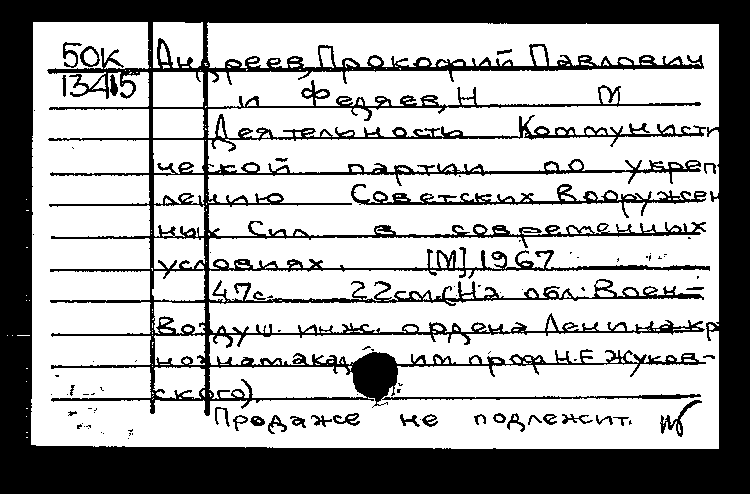 50К Андреев, Прокофий Павлович
13415 и Федяев, Н М
Деятельность Коммунисти
ческой партии по укреп-
лению Советских Вооружен
ных Сил в современных
условиях. [М], 1967
47с. 22см. (На обл: Воен-
Воздуш. инж. ордена Ленина кр
нознам. акад им. проф Н.Е Жуков-
ского).
Продаже не подлежит.